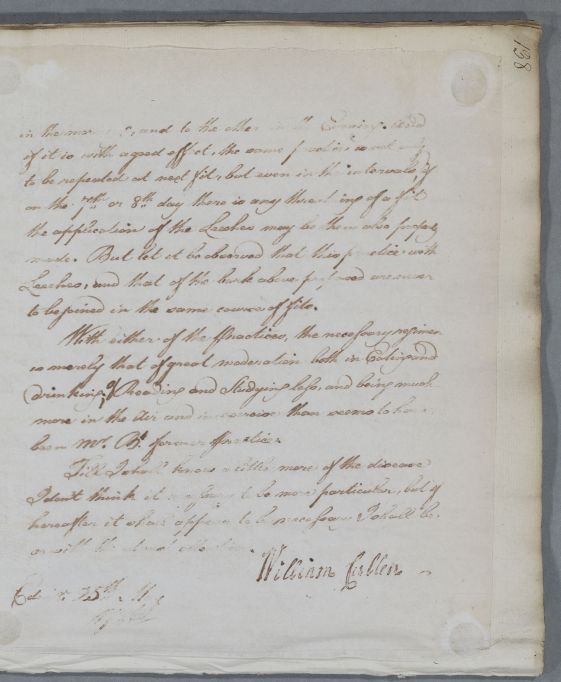 198
in the and to the other in the Evening. And
if it is with a good effect, the same practice is not only
to be repeated at next fit, but even in the intervals, if
on the 7th or 8th day there is any threatning of a fit
the application of the Leeches may be then also properly
made. But let it be observed that this practice with
Leeches, and that of the bark above proposed are never
to be joined in the same course of fits.
With either of the Practices, the necessary regimen
is merely that of great moderation both in Eating and
drinking, of Reading and Studying less, and being much
more in the Air and in exercise than seems to have
been Mr. former Practice.
Till I shall know a little more of the disease
I dont think it necessary to be more particular, but if
hereafter it shall appear to be necessary I shall be
with the utmost attention.
William Cullen
25th